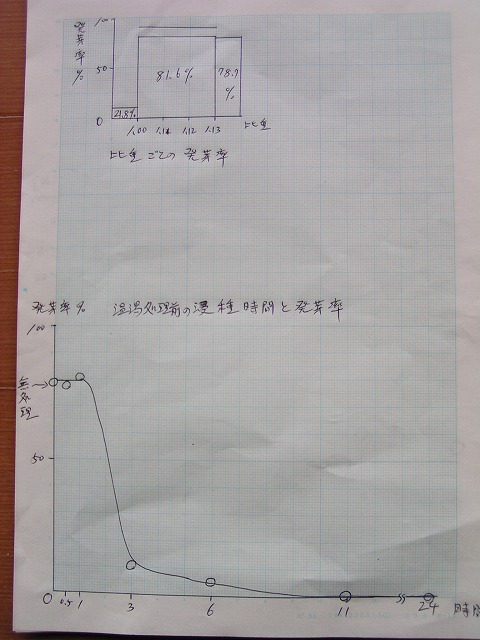 発芽率%
100
50
0
21.8%
81.6%
78.7%
1.00 1.14 1.12 1.13 比重
比重ごとの発芽率
発芽率% 温湯処理前の浸種時間と発芽率
100
無処理→
50
0 0.5 1 3 6 11 24 時間